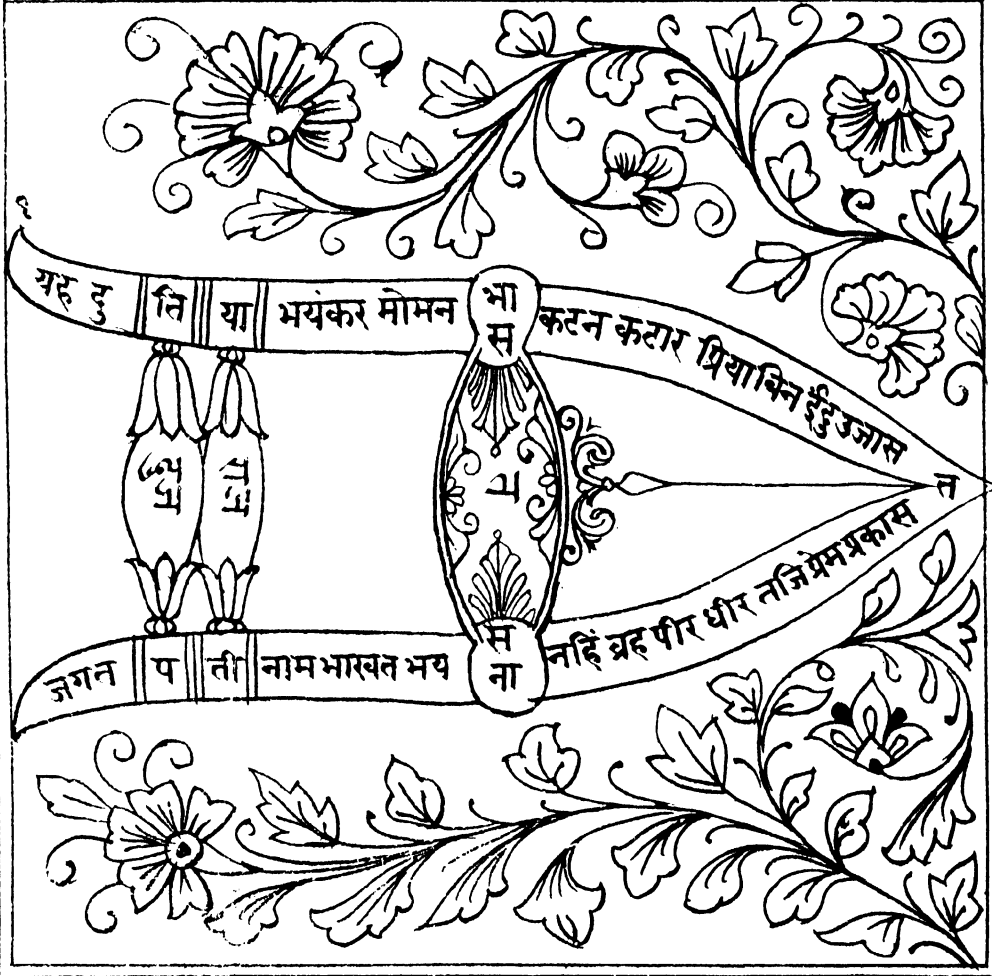 १
यह दु ति या भयंकर मोमन भा कटन कटार प्रिया बिन ईंदु उजास
स
त
स
जगन प ती नाम भाखत भय ना नहिं ब्रह पीर धीर तजि प्रेम प्रकास